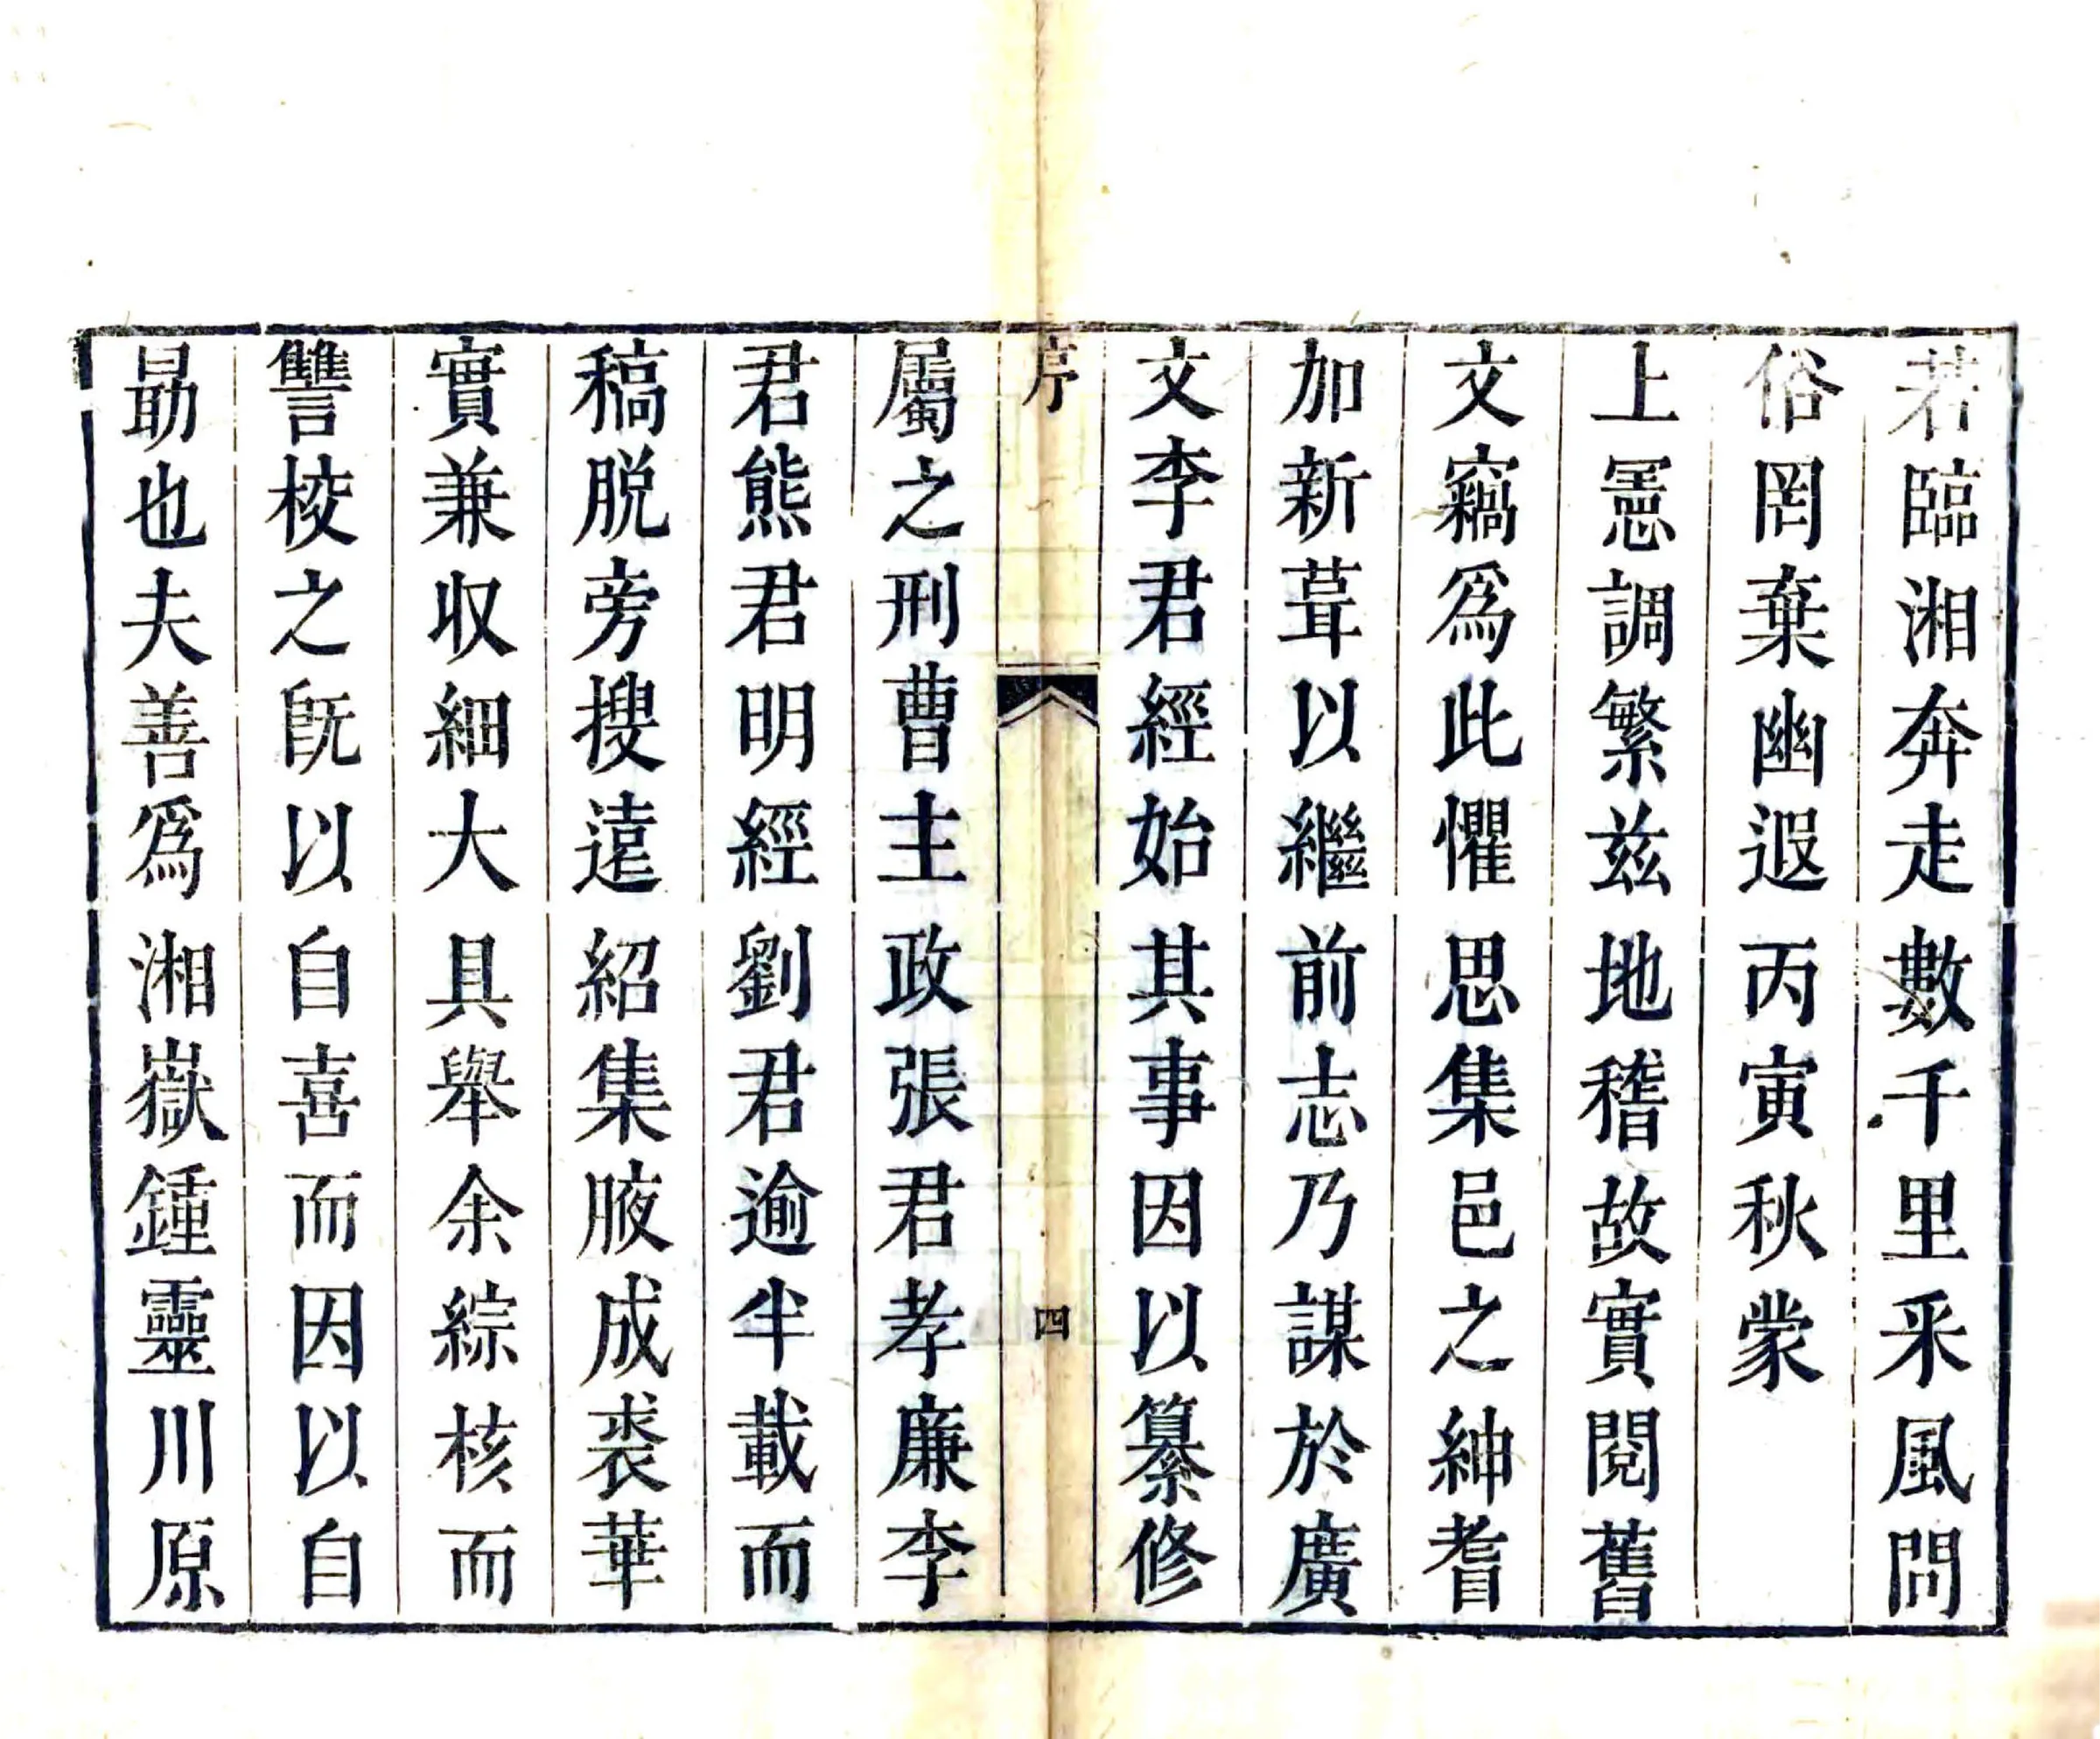 若臨湘奔走數千里釆風問
俗罔棄幽遐丙寅秋蒙
上憲調繁兹地稽故實閱舊
文竊爲此懼思集邑之紳耆
加新葺以繼前志乃謀於廣
文李君經始其事因以纂修
序
四
屬之刑曹主政張君孝廉李
君熊君明經劉君逾半載而
稿脱旁搜遠紹集腋成裘華
實兼収細大具舉余綜核而
讐校之旣以自喜而因以自
勗也夫善爲湘嶽鍾靈川原